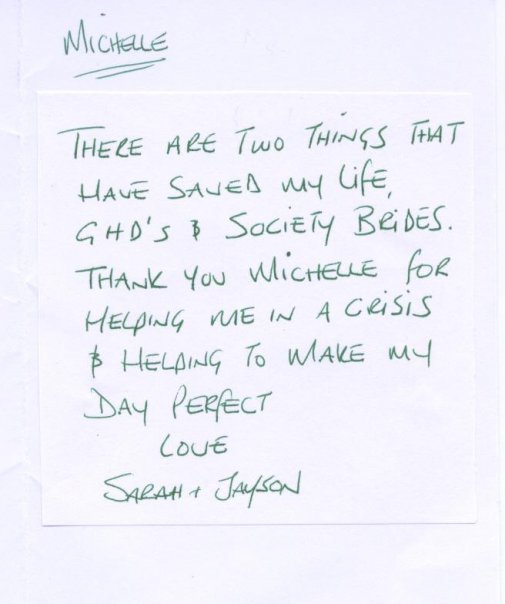 MICHELLE
THERE ARE TWO THINGS THAT
HAVE SAVED MY LIFE,
GHD'S & SOCIETY BRIDES.
THANK YOU MICHELLE FOR
HELPING ME IN A CRISIS
& HELPING TO MAKE MY
DAY PERFECT
LOVE
SARAH + JAYSON